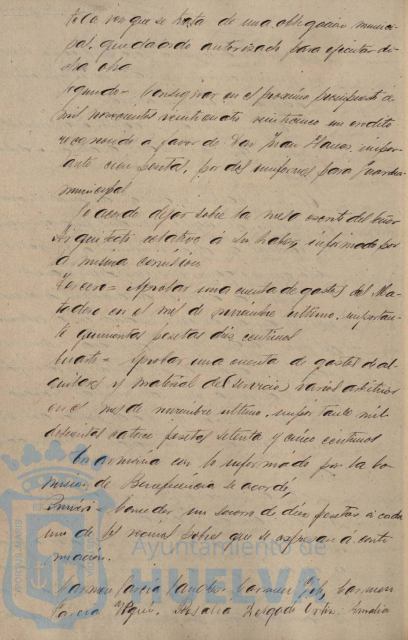 que se trata de una obligación munici-
pal, quedando autorizado para ejecutar di-
cha obra
Segundo = Consignar en el próximo presupuesto de
mil novecientos veinticuatro veinticinco un crédito
reconocido a favor de Don Juan import-
ante cien pesetas, por dos uniformes para Guardia
municipal
Se acuerda dejar sobre la mesa escrito del Señor
Arquitecto relativo á su haber, informado por
la misma comisión
Tercero = Aprobar una cuenta de gastos del Ma-
tadero en el mes de noviembre último, importan-
te quinientas pesetas diez centimos
Cuarto = Aprobar una cuenta de gastos de al-
quileres y material del servicio varios arbitrios
en el mes de noviembre último, importante mil
doscientas catorce pesetas setenta y cinco centimos
En armonia con lo informado por la Co-
misión de Beneficencia se acordó,
Primero = Conceder un socorro de diez pesetas á cada
uno de los vecinos pobres que se expresan a conti-
nuación.
Carmen Garcia Sanchez Carmen Carmen
Garcia Rosalia Amalia
Ayuntamiento de
HUELVA